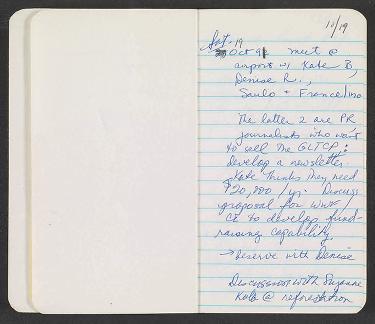 10/19
Sat. 19
Oct 91 meet @
airport w/ Kate B,
Denise R.,
Saulo + France/
The latter 2 are PR
journalists who want
to sell the GLTCP:
develop a newsletter.
Kate thinks they need
$20,000/yr. Discuss
proposal for WWF/
CI to develop fund-
raising capability
→ Reserve with Denise
Discussion with Suzanne
Kolb @ reforestation